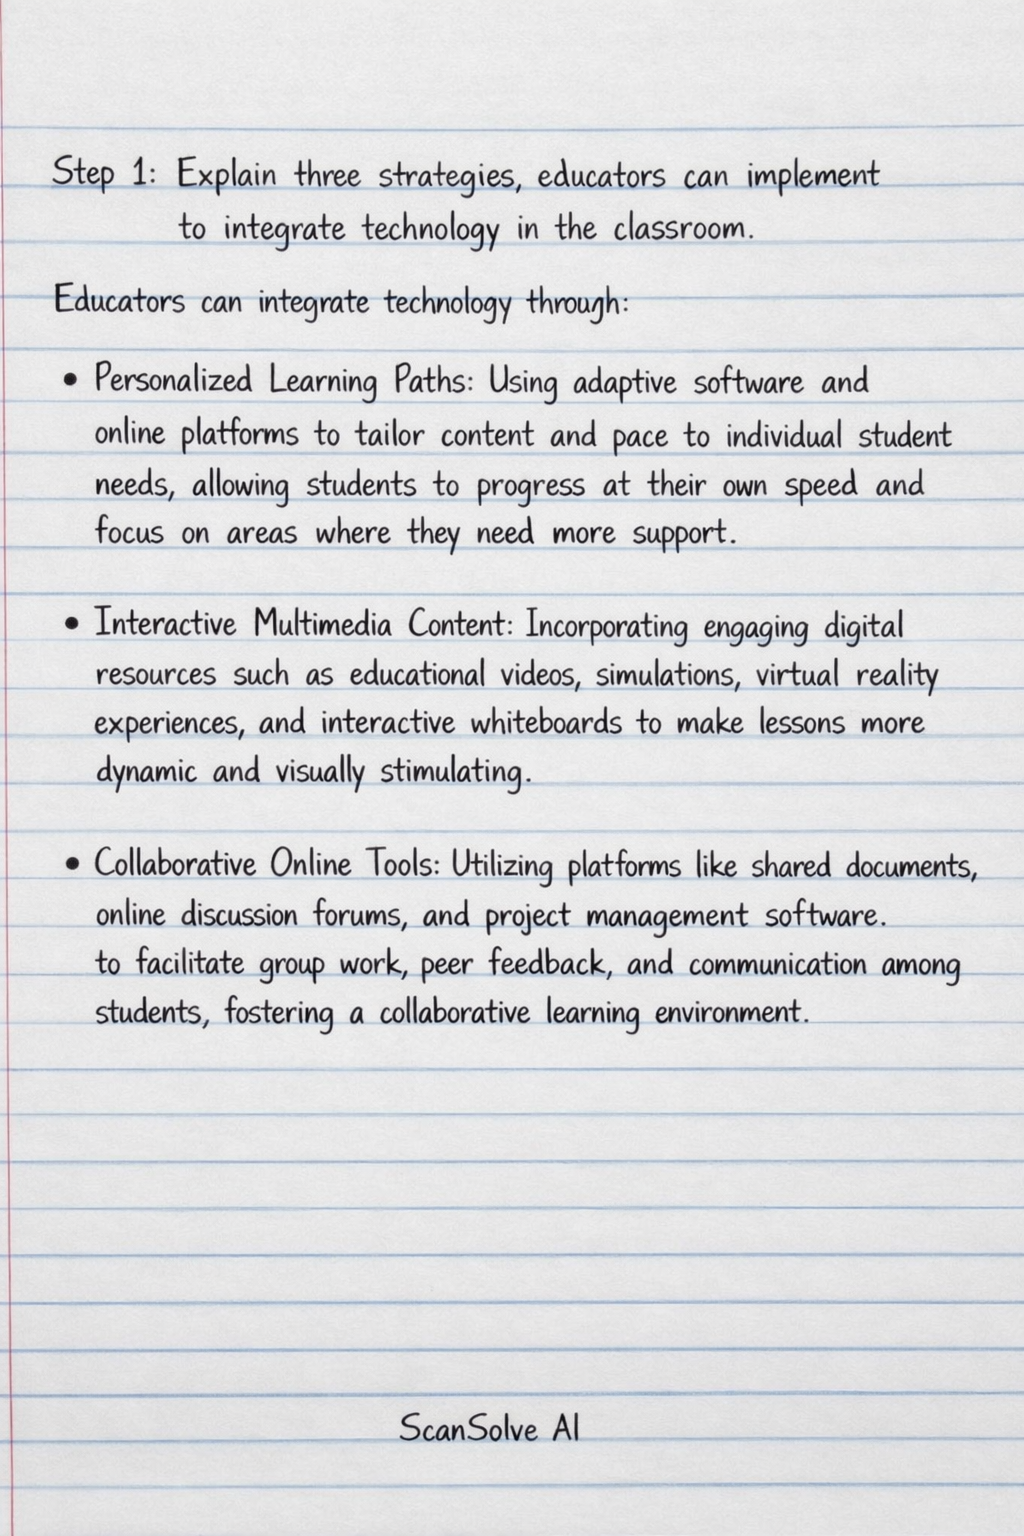 Step 1: Explain three strategies, educators can implement
to integrate technology in the classroom.
Educators can integrate technology through:
• Personalized Learning Paths: Using adaptive software and
online platforms to tailor content and pace to individual student
needs, allowing students to progress at their own speed and
focus on areas where they need more support.
• Interactive Multimedia Content: Incorporating engaging digital
resources such as educational videos, simulations, virtual reality
experiences, and interactive whiteboards to make lessons more
dynamic and visually stimulating.
• Collaborative Online Tools: Utilizing platforms like shared documents,
online discussion forums, and project management software.
to facilitate group work, peer feedback, and communication among
students, fostering a collaborative learning environment.
ScanSolve AI